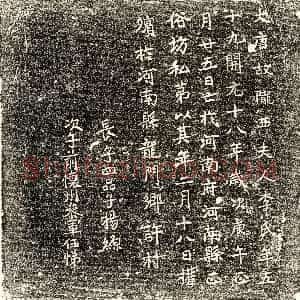 大唐故隴西夫人李氏年五
十九開元十八年歲次庚午正
月廿五日亡於河南府河南縣正
俗坊私第以其年二月十八日權
殯於河南縣龍門鄉許村
長子四品子楊絢
次子前懷州參軍任悌